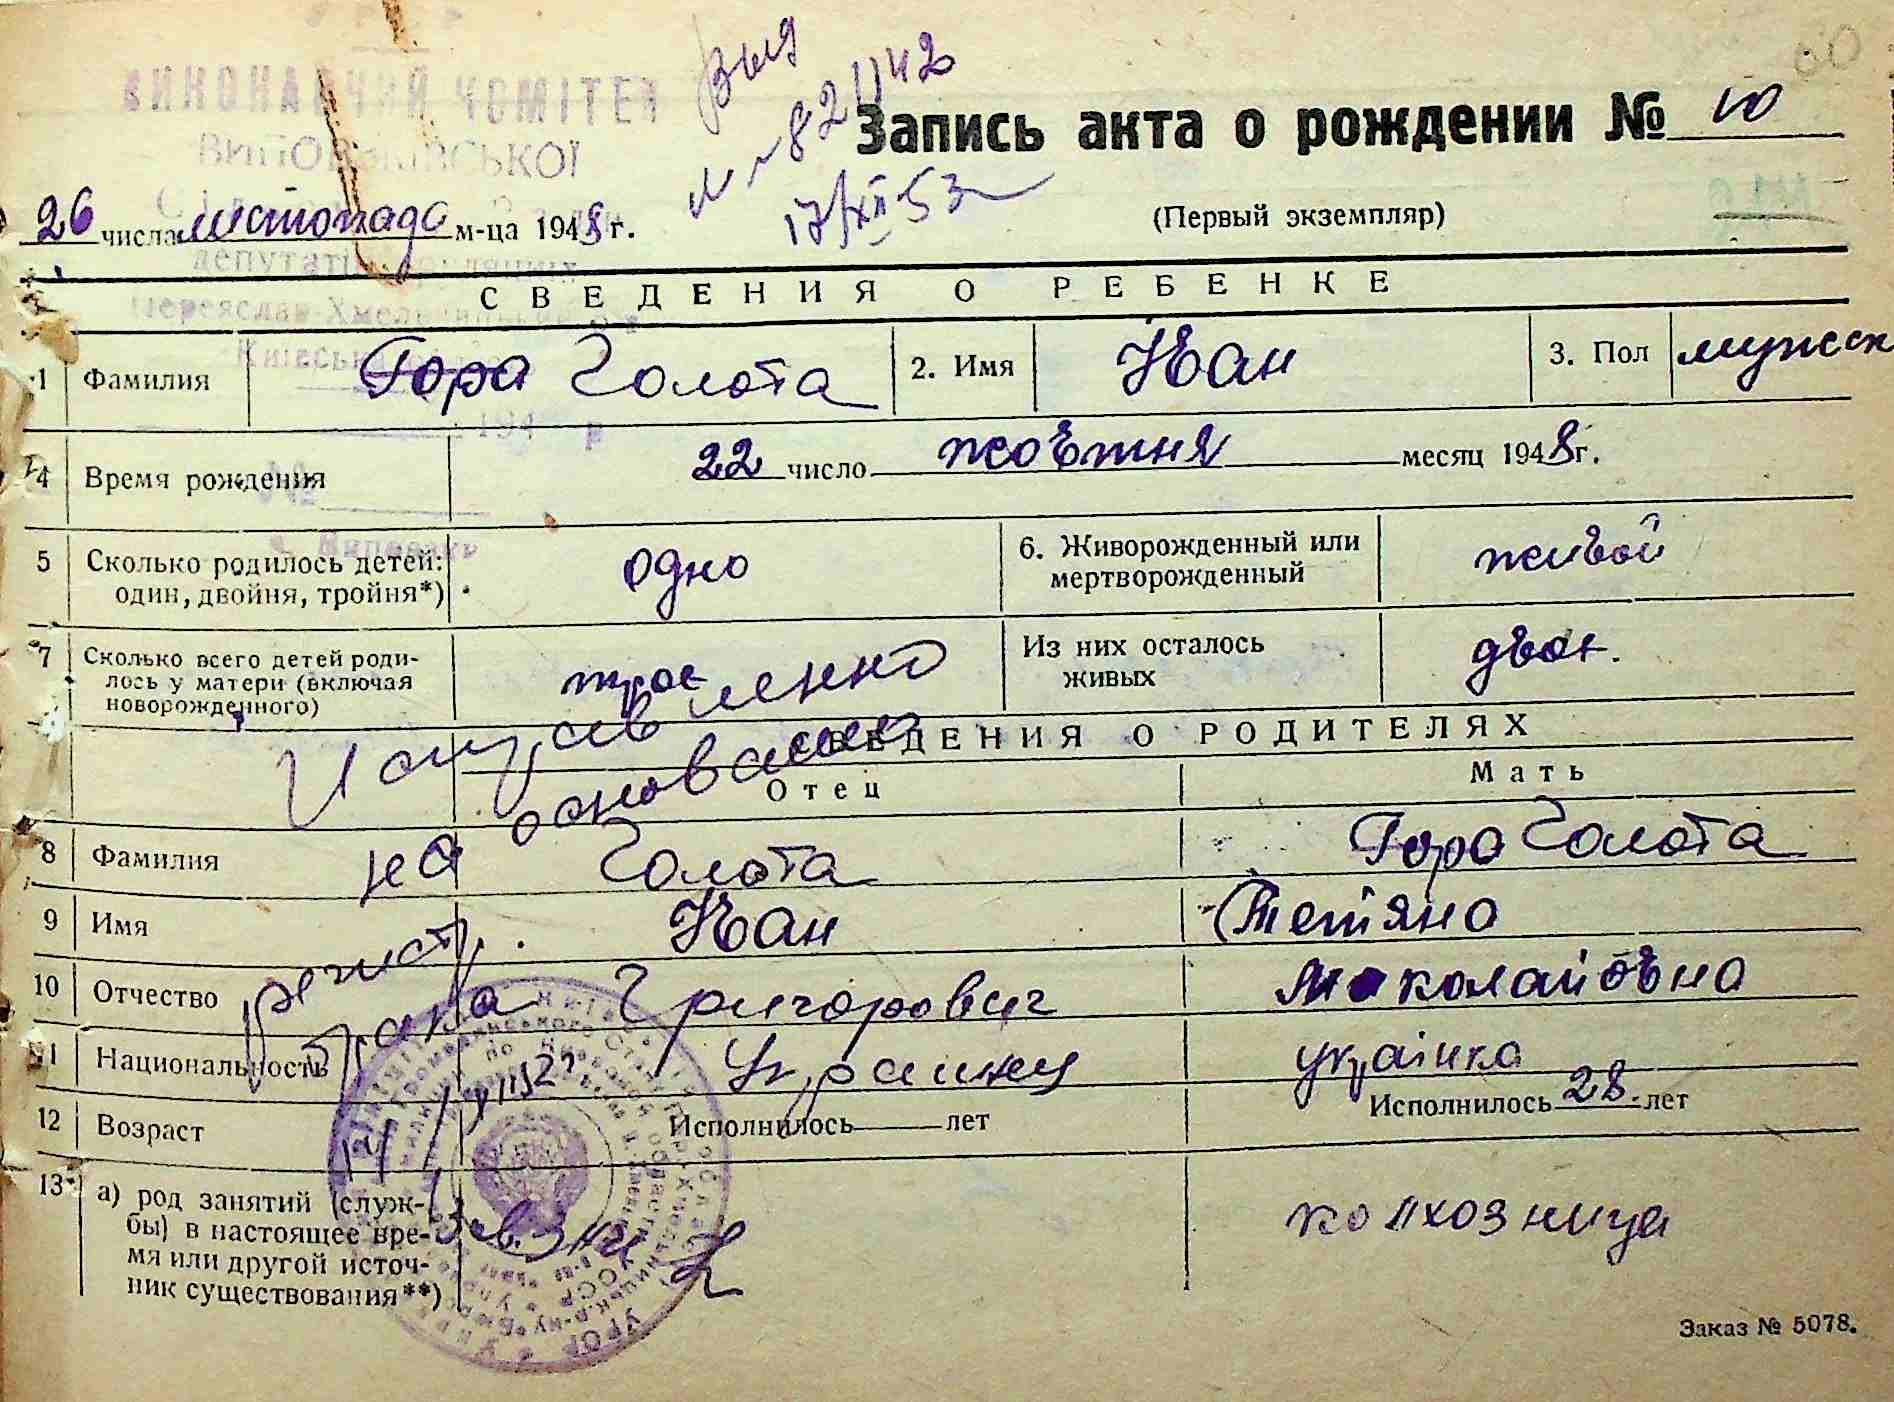 У Р С Р
ВИКОНАВЧИЙ КОМІТЕТ
ВИПОВЗКІВСЬКОЇ
депутатів трудящих
Переяслав-Хмельницький р-н
Київської
194 р
№
с. Виповзки
Выд
№ 821142
17/XII-53
60
Запись акта о рождении № 10
26 числа листопада м-ца 1948 г.
(Первый экземпляр)
СВЕДЕНИЯ О РЕБЕНКЕ
1 Фамилия Гора Голота 2. Имя Іван 3. Пол мужск
4 Время рождения 22 число жовтня месяц 1948 г.
5 Сколько родилось детей: один, двойня, тройня*) одно 6. Живорожденный или мертворожденный живой
7 Сколько всего детей родилось у матери (включая новорожденного) трое Из них осталось живых двое.
СВЕДЕНИЯ О РОДИТЕЛЯХ
Отец Мать
8 Фамилия Голота Гора Голота
9 Имя Іван Тетяна
10 Отчество Григорович Миколаївна
11 Национальность Украинец українка
12 Возраст Исполнилось лет Исполнилось 28. лет
13 а) род занятий (служ-
бы) в настоящее вре-
мя или другой источ-
ник существования**)
колхозница
Исправленно
на основании
регистр.
брака
Зав.
Заказ № 5078.